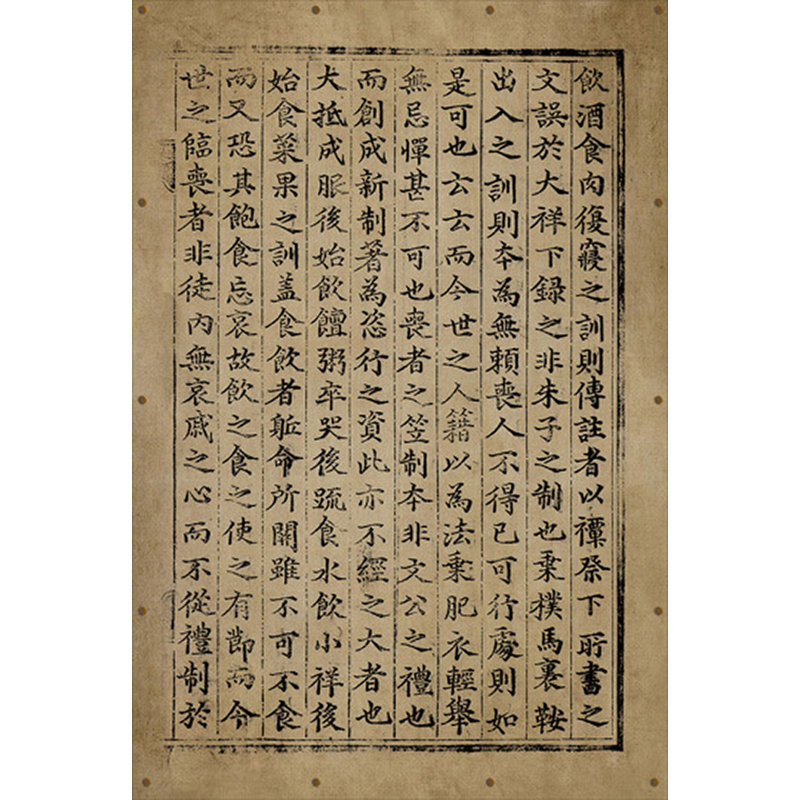 飲酒食肉復寢之訓則傳註者以禫祭下所書之
文誤於大祥下録之非朱子之制也乗撲馬裹鞍
出入之訓則夲為無頼喪人不得已可行處則如
是可也云云而今世之人籍以為法乗肥衣輕舉
無忌憚甚不可也喪者之笠制夲非文公之禮也
而創成新制著為恣行之資此亦不經之大者也
大抵成服後始飲饘粥卒哭後䟽食水飲小祥後
始食菜果之訓盖食飲者軀命所關雖不可不食
而又恐其飽食忘哀故飲之食之使之有節而今
世之臨喪者非徒内無哀戚之心而不從禮制於